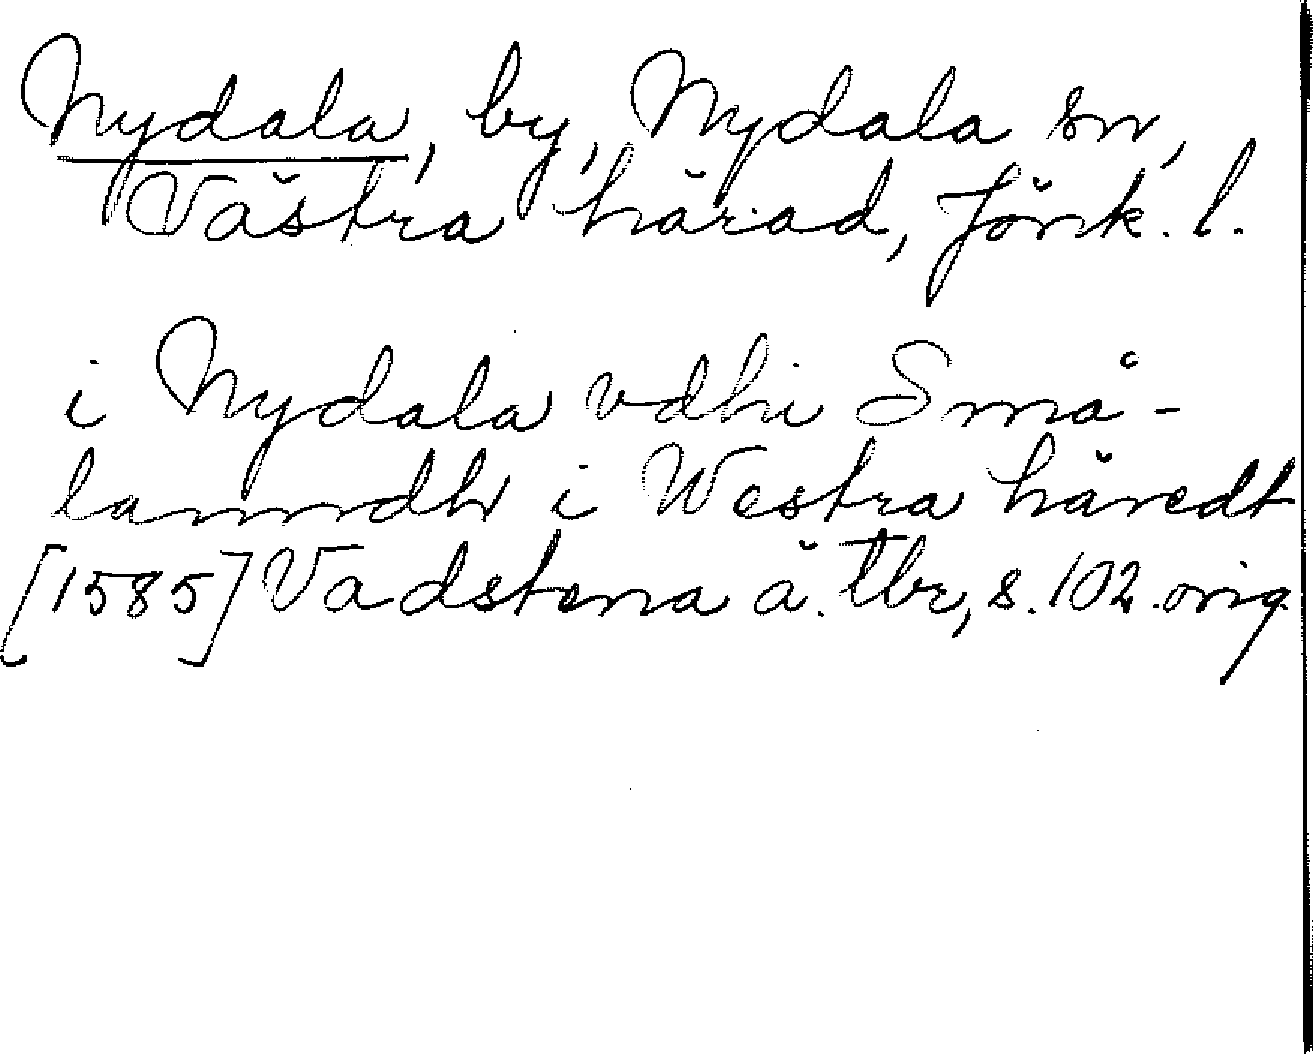 Nydala, by, Nydala sn,
Västra härad, Jönk. l.
i Nydala vdhi Små-
lanndh i Westra häredt
[1585] Vadstena ä. tbr, s. 102. orig.